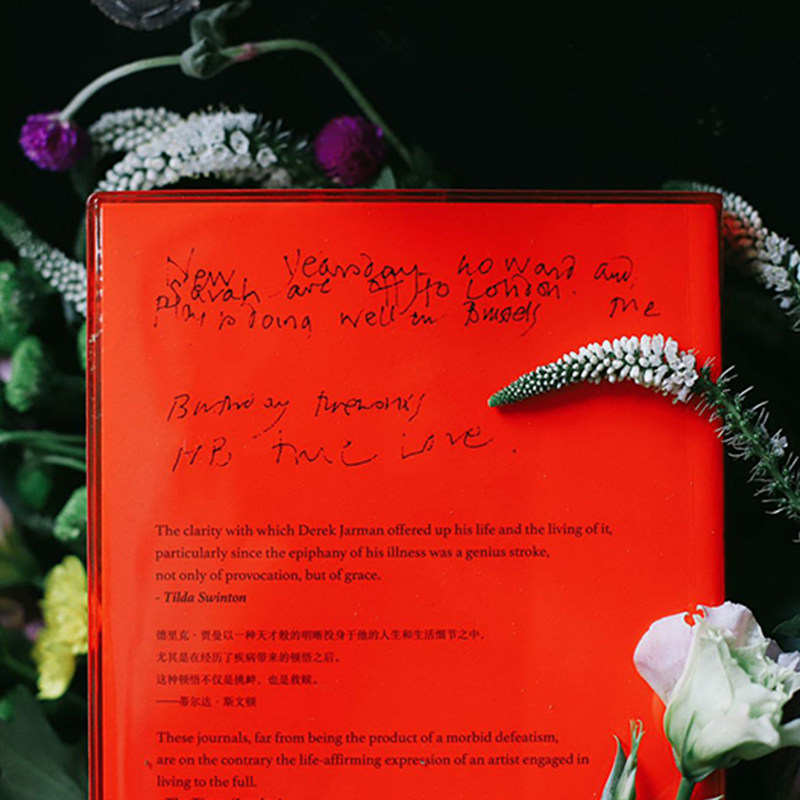 New Yearsday howard and
Sarah are off to London.
is doing well in Brussels The
Birthday fireworks
HB true love.
The clarity with which Derek Jarman offered up his life and the living of it,
particularly since the epiphany of his illness was a genius stroke,
not only of provocation, but of grace.
- Tilda Swinton
德里克·贾曼以一种天才般的明晰投身于他的人生和生活细节之中，
尤其是在经历了疾病带来的顿悟之后。
这种顿悟不仅是挑衅，也是救赎。
——蒂尔达·斯文顿
These journals, far from being the product of a morbid defeatism,
are on the contrary the life-affirming expression of an artist engaged in
living to the full.